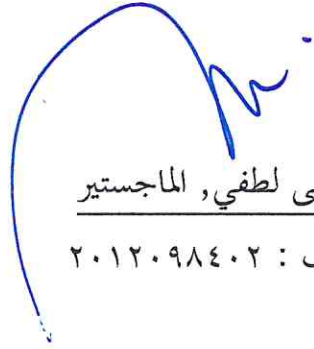 ى لطفي, الماجستير
ف : ٢٠١٢٠٩٨٤٠٢